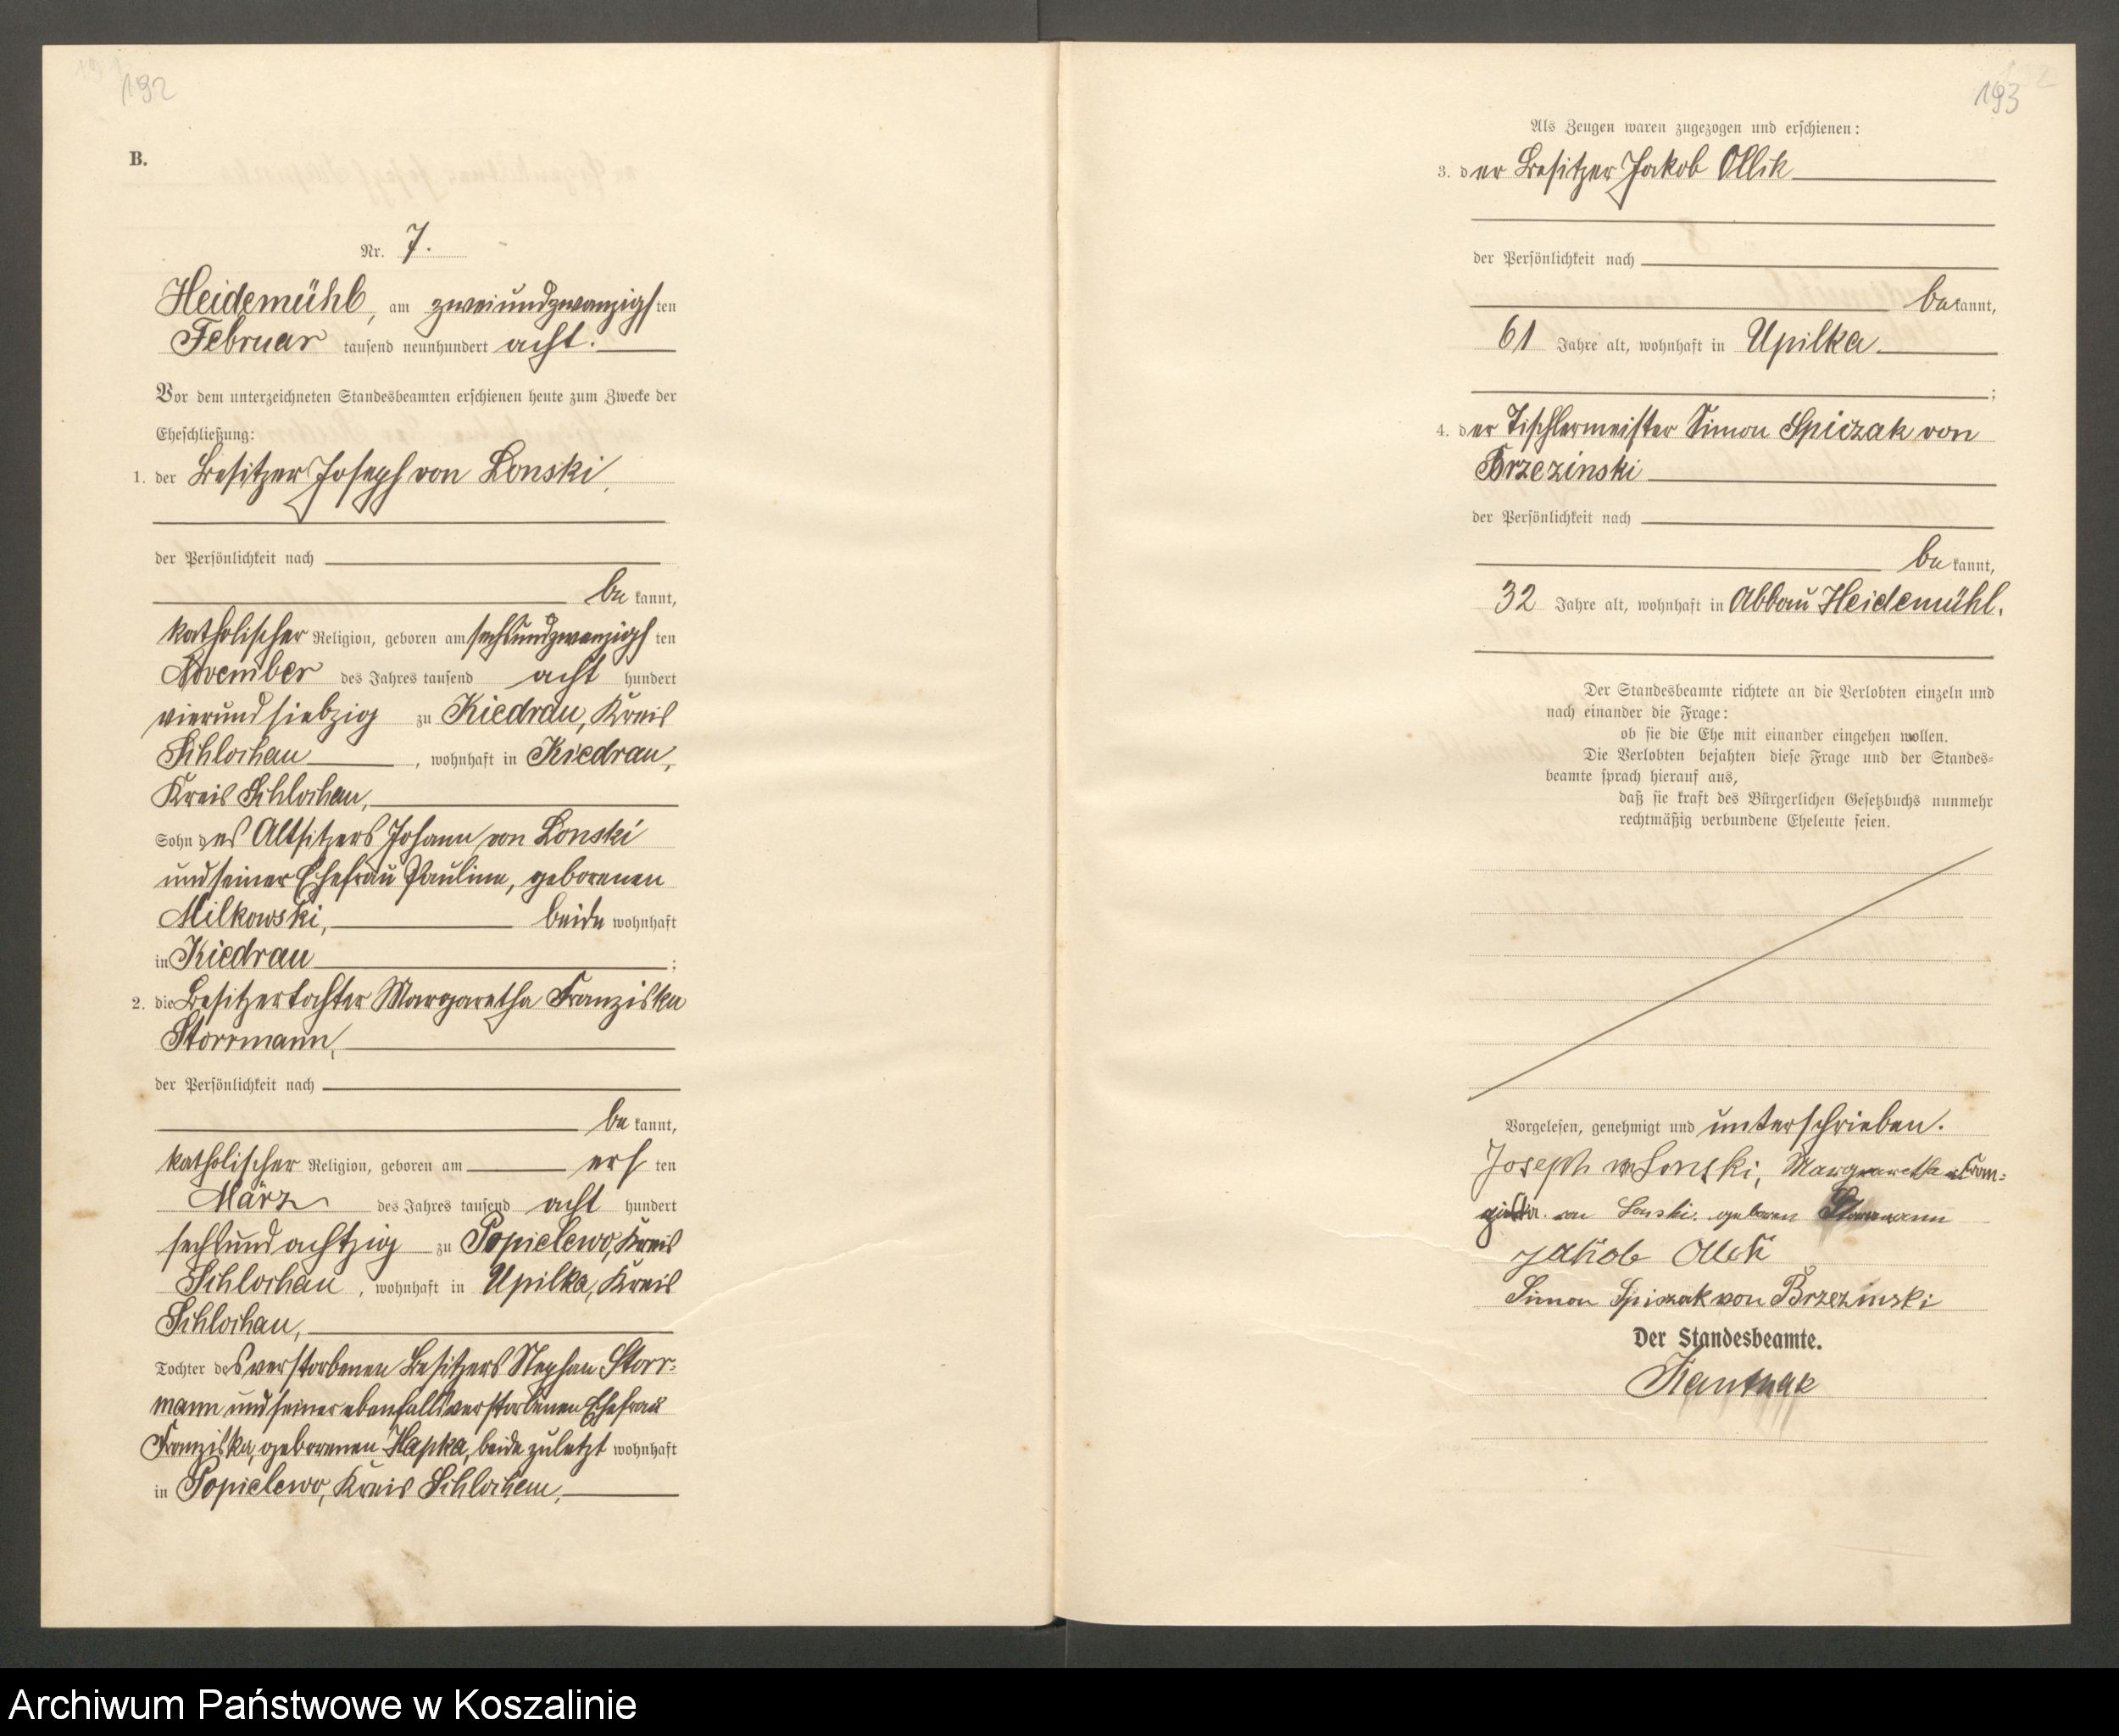 192
B.
Nr. 7.
Heidemühl, am zweiundzwanzigsten
Februar tausend neunhundert acht.
Vor dem unterzeichneten Standesbeamten erschienen heute zum Zwecke der
Eheschließung:
1. der Besitzer Joseph von Lonski,
der Persönlichkeit nach
bekannt,
katholischer Religion, geboren am sechsundzwanzigsten
November des Jahres tausend acht hundert
vierundsiebzig zu Kiedrau, Kreis
Schlochau, wohnhaft in Kiedrau,
Kreis Schlochau,
Sohn des Altsitzers Johann von Lonski
und seiner Ehefrau Pauline, geborenen
Milkowski, beide wohnhaft
in Kiedrau;
2. die Besitzertochter Margaretha Franziska
Storrmann,
der Persönlichkeit nach
bekannt,
katholischer Religion, geboren am ersten
März des Jahres tausend acht hundert
sechsundachtzig zu Popielewo, Kreis
Schlochau, wohnhaft in Upilka, Kreis
Schlochau,
Tochter des verstorbenen Besitzers Stephan Storr=
mann und seiner ebenfalls verstorbenen Ehefrau
Franziska, geborenen Hapka, beide zuletzt wohnhaft
in Popielewo, Kreis Schlochau,
193
Als Zeugen waren zugezogen und erschienen:
3. der Besitzer Jakob Ollik
der Persönlichkeit nach
bekannt,
61 Jahre alt, wohnhaft in Upilka
;
4. der Tischlermeister Simon Spiczak von
Brzezinski
der Persönlichkeit nach
bekannt,
32 Jahre alt, wohnhaft in Abbau Heidemühl.
Der Standesbeamte richtete an die Verlobten einzeln und
nach einander die Frage:
ob sie die Ehe mit einander eingehen wollen.
Die Verlobten bejahten diese Frage und der Standes=
beamte sprach hierauf aus,
daß sie kraft des Bürgerlichen Gesetzbuchs nunmehr
rechtmäßig verbundene Eheleute seien.
Vorgelesen, genehmigt und unterschrieben.
Joseph von Lonski, Margaretha Fran=
ziska von Lonski geboren Storrmann
Jakob Ollik
Simon Spiczak von Brzezinski
Der Standesbeamte.
Archiwum Państwowe w Koszalinie